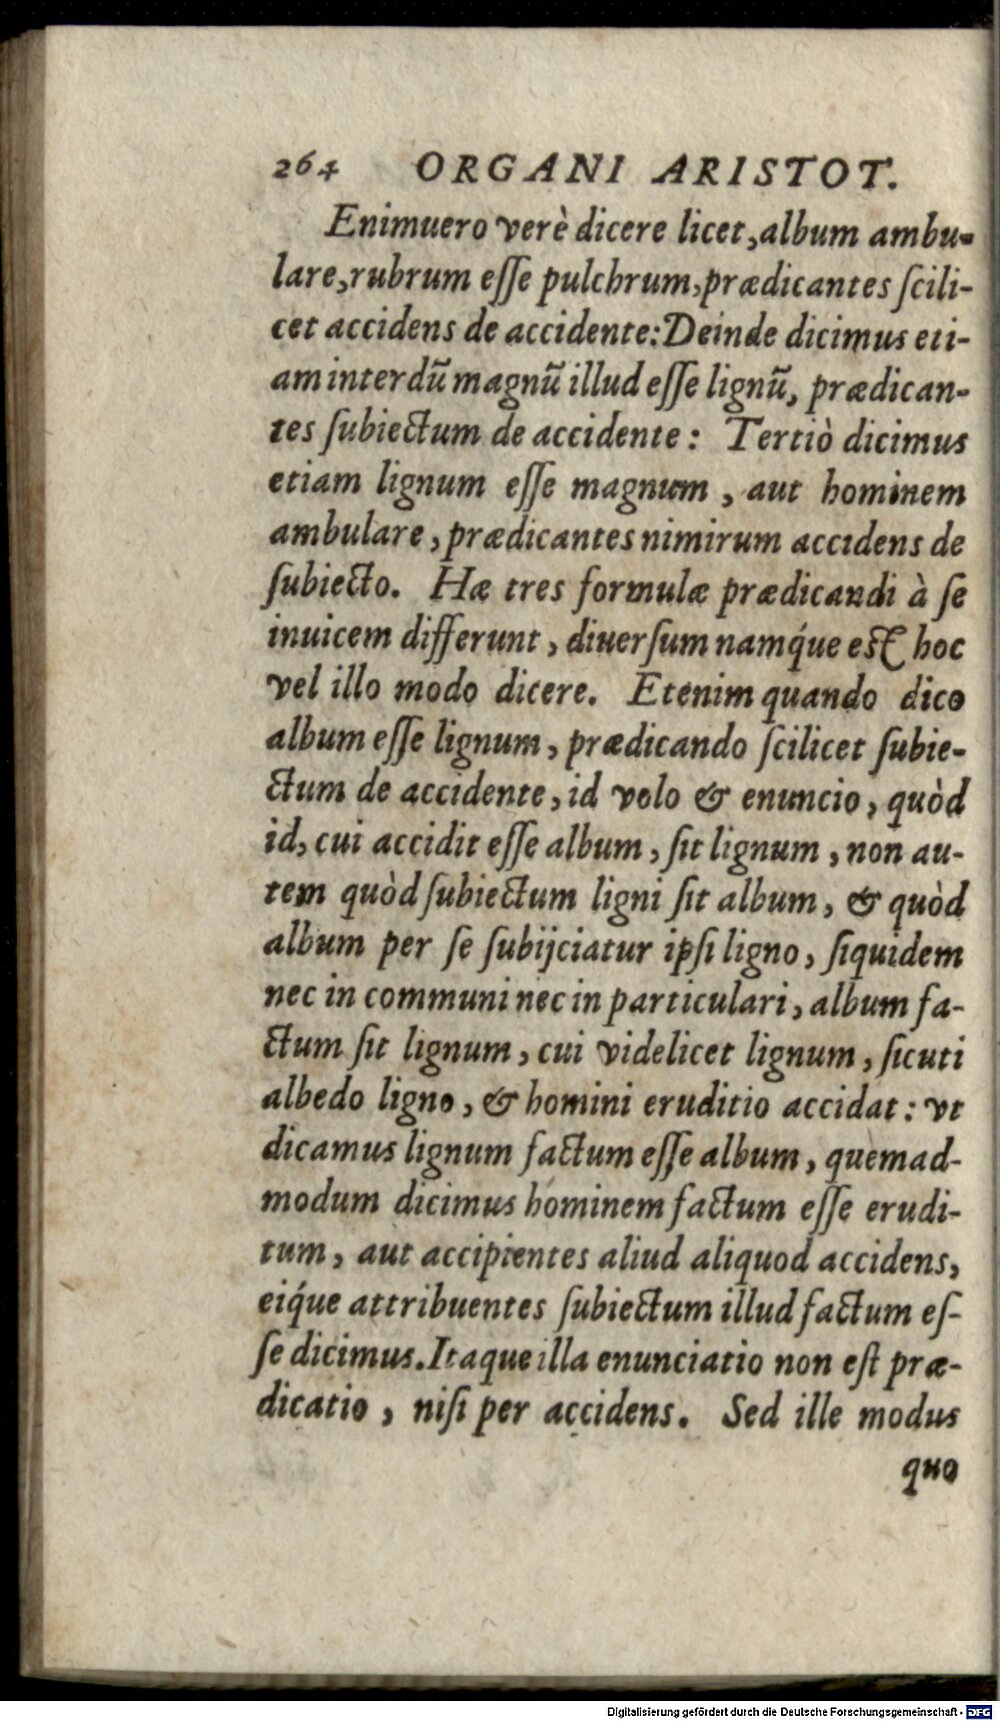 264 ORGANI ARISTOT.
Enimuero verè dicere licet, album ambu-
lare, rubrum eſſe pulchrum, prædicantes ſcili-
cet accidens de accidente: Deinde dicimus eti-
am interdũ magnũ illud eſſe lignũ, prædican-
tes ſubiectum de accidente: Tertiò dicimus
etiam lignum eſſe magnum, aut hominem
ambulare, prædicantes nimirum accidens de
ſubiecto. Hæ tres formulæ prædicandi à ſe
inuicem differunt, diuerſum namq́ue eſt hoc
vel illo modo dicere. Etenim quando dico
album eſſe lignum, prædicando ſcilicet ſubie-
ctum de accidente, id volo & enuncio, quòd
id, cui accidit eſſe album, ſit lignum, non au-
tem quòd ſubiectum ligni ſit album, & quòd
album per ſe ſubijciatur ipſi ligno, ſiquidem
nec in communi nec in particulari, album fa-
ctum ſit lignum, cui videlicet lignum, ſicuti
albedo ligno, & homini eruditio accidat: vt
dicamus lignum factum eſſe album, quemad-
modum dicimus hominem factum eſſe erudi-
tum, aut accipientes aliud aliquod accidens,
eiq́ue attribuentes ſubiectum illud factum eſ-
ſe dicimus. Itaque illa enunciatio non eſt præ-
dicatio, niſi per accidens. Sed ille modus
quo
Digitalisierung gefördert durch die Deutsche Forschungsgemeinschaft - DFG